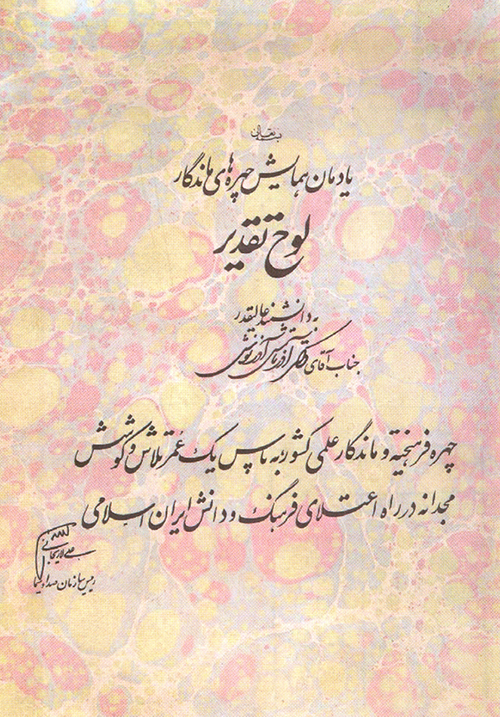 بسمه تعالی
یادمان همایش چهره های ماندگار
لوح تقدیر
به دانشمند عالیقدر
جناب آقای دکتر آذرتاش آذرنوش
چهره فرهیخته و ماندگار علمی کشور به پاس یک عمر تلاش و کوشش
مجدانه در راه اعتلای فرهنگ و دانش ایران اسلامی
علی لاریجانی
رئیس سازمان صدا و سیما